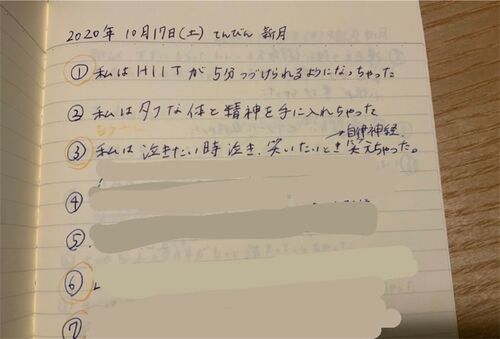 2020年 10月17日(土) てんびん 新月
① 私はHIITが5分つづけられるようになっちゃった
② 私はタフな体と精神を手に入れちゃった
→自律神経.
③ 私は泣きたい時泣き、笑いたいとき笑えちゃった。
④
⑤
⑥
⑦